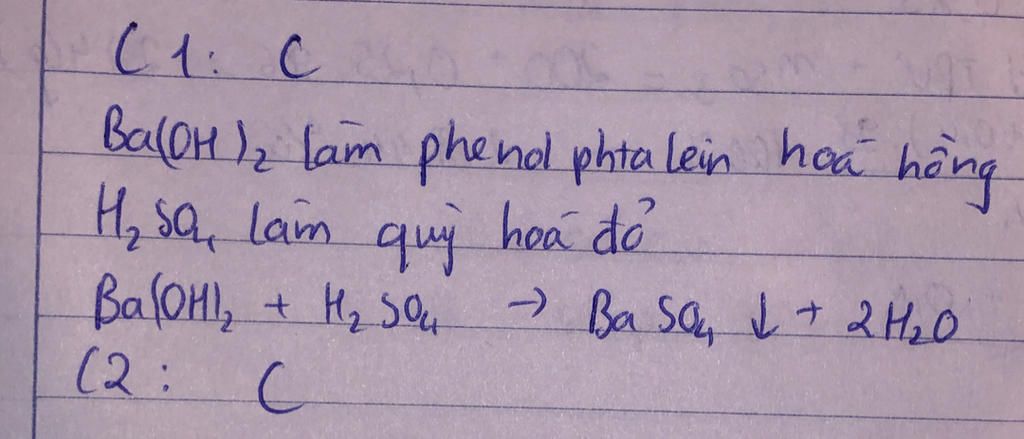 C1: C
Ba(OH)2 làm phenol phtalein hoá hồng
H2SO4 làm quỳ hoá đỏ
Ba(OH)2 + H2SO4 → BaSO4 ↓ + 2H2O
C2: C